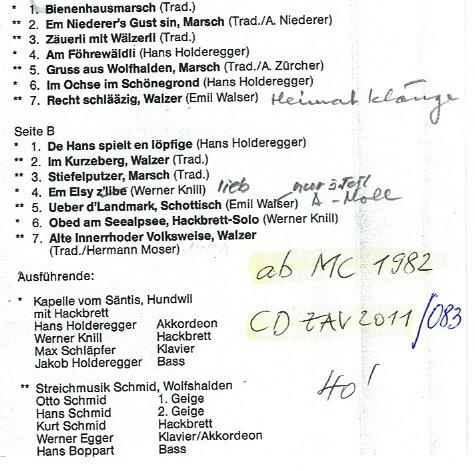 * 1. Bienenhausmarsch (Trad.)
** 2. Em Niederer's Gust sin, Marsch (Trad./A. Niederer)
** 3. Zäuerli mit Wälzerli (Trad.)
* 4. Am Föhrewäldli (Hans Holderegger)
** 5. Gruss aus Wolfhalden, Marsch (Trad./A. Zürcher)
* 6. Im Ochse im Schönegrond (Hans Holderegger)
** 7. Recht schlääzig, Walzer (Emil Walser) Heimat klänge
Seite B
* 1. De Hans spielt en löpfige (Hans Holderegger)
** 2. Im Kurzeberg, Walzer (Trad.)
** 3. Stiefelputzer, Marsch (Trad.)
* 4. Em Elsy z'libe (Werner Knill) lieb nur 3 Teil
** 5. Ueber d'Landmark, Schottisch (Emil Walser) A - Moll
* 6. Obed am Seealpsee, Hackbrett-Solo (Werner Knill)
** 7. Alte Innerrhoder Volksweise, Walzer
(Trad./Hermann Moser)
ab MC 1982
Ausführende:
* Kapelle vom Säntis, Hundwil
mit Hackbrett
Hans Holderegger Akkordeon
Werner Knill Hackbrett
Max Schläpfer Klavier
Jakob Holderegger Bass
CD ZAV 2011/083
Ho!
** Streichmusik Schmid, Wolfshalden
Otto Schmid 1. Geige
Hans Schmid 2. Geige
Kurt Schmid Hackbrett
Werner Egger Klavier/Akkordeon
Hans Boppart Bass